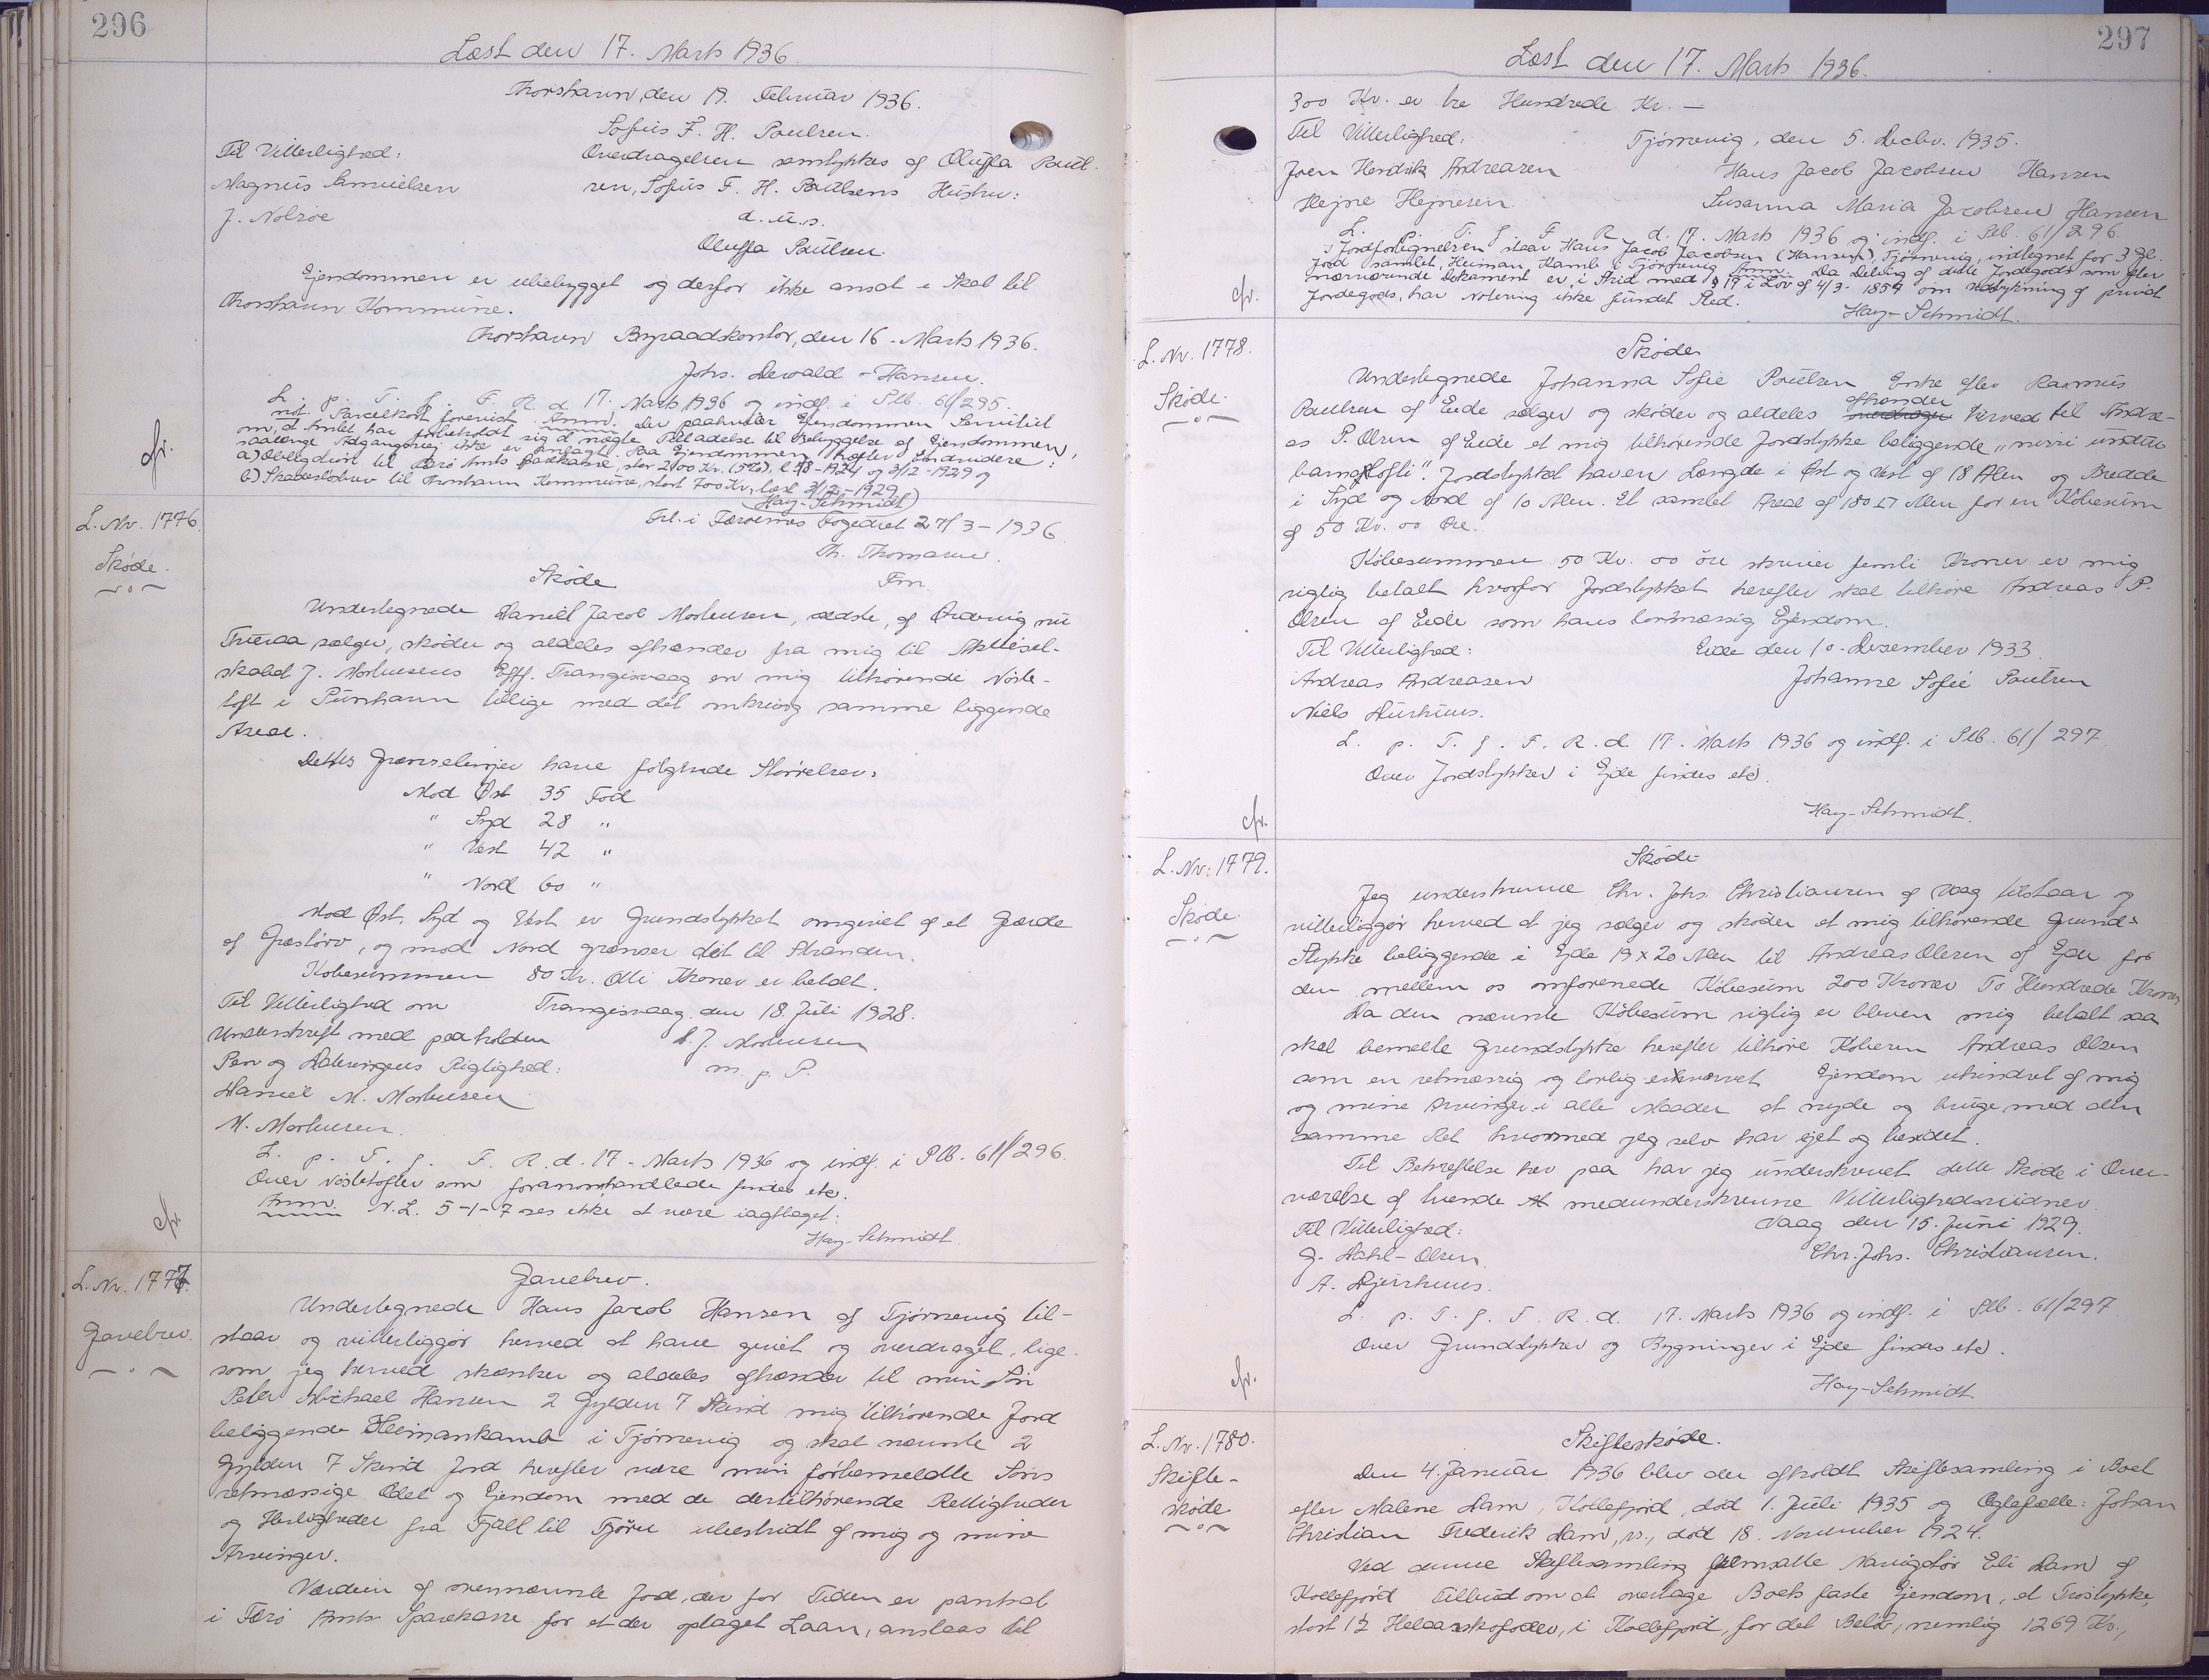 296
Læst den 17. Marts 1936.
Thorshavn, den 19. Februar 1936.
Sofus F. H. Poulsen.
Til Vitterlighed: Overdragelsen samtykkes af Oluffa Poul-
Magnus Samuelsen sen, Sofus F. H. Poulsens Hustru:
J. Nolsøe d. u. s.
Oluffa Poulsen
Ejendommen er ubebygget og derfor ikke ansat i Skat til
Thorshavn Kommune.
Thorshavn Byraadskontor, den 16. Marts 1936.
Johs. Dewald-Hansen.
L. p. T. f. F. R. d. 17. Marts 1936 og indf. i Plb. 61/295.
not. Parcelkort forevist. Anm. Der paahviler Ejendommen Servitut
om, at Amtet har forbeholdt sig at nægte Tilladelse til Bebyggelse af Ejendommen,
saalænge Adgangsvej ikke er anlagt. Paa Ejendommen hæfter Endvidere:
a) Obligation til Færø Amts Sparekasse, stor 2400 Kr. (5%), l. 5/8-1924 og 3/12-1929 og
b) Skadesløsbrev til Thorshavn Kommune, stort 700 Kr., læst 3/12-1929
Hay-Schmidt
Frl. i Færøernes Fogedret 27/3-1936
Th. Thomasen
Fm.
cfr.
L. Nr. 1776.
Skøde.
Skøde
Undertegnede Daniel Jacob Mortensen, ældste, af Ørdevig nu
Tveraa sælger, skøder og aldeles afhænder fra mig til Aktiesel-
skabet J. Mortensens Eftf. Trangisvaag en mig tilhørende Nøste-
toft i Punthavn tillige med det omkring samme liggende
Areal.
Dettes Grænselinjer have følgende Størrelser:
Mod Øst 35 Fod
" Syd 28 "
" Vest 42 "
" Nord 60 "
Mod Øst, Syd og Vest er Grundstykket omgivet af et Gærde
af Græstørv, og mod Nord grænser det til Stranden.
Købesummen 80 Kr. Otti Kroner er betalt.
Til Vitterlighed om Trangisvaag, den 18. Juli 1928.
Underskrift med paaholden D. J. Mortensen
Pen og Dateringens Rigtighed: m. p. P.
Daniel M. Mortensen
M. Mortensen.
L. p. T. f. F. R. d. 17. Marts 1936 og indf. i Plb. 61/296.
Over Nøstetofter som foranomhandlede findes etc.
Anm. N.L. 5-1-7 ses ikke at være iagttaget.
Hay-Schmidt
cfr.
L. Nr. 1777.
Gavebrev.
Gavebrev.
Undertegnede Hans Jacob Hansen af Tjørnevig til-
staar og vitterliggør herved at have givet og overdraget, lige-
som jeg herved skænker og aldeles afhænder til min Søn
Peter Michael Hansen 2 Gylden 7 Skind mig tilhørende Jord
beliggende Heimankamb i Tjørnevig og skal nævnte 2
Gylden 7 Skind Jord herefter være min førbemeldte Søns
retmæssige Odel og Ejendom med de dertilhørende Rettigheder
og Herligheder fra Fjæll til Fjøru ubestridt af mig og mine
Arvinger.
Værdien af ovennævnte Jord, der for Tiden er pantsat
i Færø Amts Sparekasse for et der optaget Laan, anslaas til
297
Læst den 17. Marts 1936.
300 Kr. er tre Hundrede Kr. —
Til Vitterlighed: Tjørnevig, den 5. Decbr. 1935.
Joen Hendrik Andreasen Hans Jacob Jacobsen Hansen
Hejne Hejnesen. Susanna Maria Jacobsen Hansen
L. p. T. f. F. R. d. 17. Marts 1936 og indf. i Plb. 61/296
i Jordfortegnelsen staar Hans Jacob Jacobsen (Hansen), Tjørnevig, indtegnet for 3 Gl.
Jord samlet, Heiman Kamb i Tjørnevig. Anm. Da Deling af dette Jordegods som efter
nærværende Dokument er i Strid med § 19 i Lov af 4/3 1857 om Udstykning af privat
Jordegods, har Notering ikke fundet Sted.
Hay-Schmidt.
cfr.
L. Nr. 1778.
Skøde.
Skøde
Undertegnede Johanna Sofie Poulsen Enke efter Rasmus
Poulsen af Eide sælger og skøder og aldeles overdrager afhænder herved til Andre-
as P. Olsen af Eide et mig tilhørende Jordstykke beliggende „niðri undir
barmstofti". Jordstykket haven Længde i Øst og Vest af 18 Alen og Bredde
i Syd og Nord af 10 Alen. Et samlet Areal af 180 □ Alen for en Købesum
af 50 Kr. 00 Øre.
Købesummen 50 Kr. 00 øre skriver femti Kroner er mig
rigtig betalt hvorfor Jordstykket herefter skal tilhøre Andreas P.
Olsen af Eide som hans lovmæssig Ejendom.
Til Vitterlighed: Eide den 10. Desember 1933.
Andreas Andreasen Johanne Sofie Poulsen
Niels Durhuus.
L. p. T. f. F. R. d. 17. Marts 1936 og indf. i Plb. 61/297
Over Jordstykker i Ejde findes etc.
Hay-Schmidt.
cfr.
L. Nr. 1779.
Skøde.
Skøde
Jeg underskrevne Chr. Johs. Christiansen af Vaag tilstaar og
vitterliggør herved at jeg sælger og skøder et mig tilhørende Grund-
Stykke beliggende i Ejde 19 x 20 Alen til Andreas Olesen af Ejde for
den mellem os omforenede Købesum 200 Kroner To Hundrede Kroner
Da den nævnte Købesum rigtig er bleven mig betalt saa
skal bemeldte Grundstykke herefter tilhøre Køberen Andreas Olsen
som en retmæssig og lovlig erhvervet Ejendom uhindret af mig
og mine Arvinger i alle Maader at nyde og bruge med den
samme Ret hvormed jeg selv har ejet og besidet.
Til Bekræftelse her paa har jeg underskrevet dette Skøde i Over-
værelse af tvende medunderskrevne Vitterlighedsvidner.
Til Vitterlighed: Vaag den 15. Juni 1929.
G. Dahl-Olsen Chr. Johs. Christiansen.
A. Djurhuus.
L. p. T. f. F. R. d. 17. Marts 1936 og indf. i Plb. 61/297
Over Grundstykker og Bygninger i Ejde findes etc.
Hay-Schmidt
cfr.
L. Nr. 1780.
Skifte-
skøde
Skifteskøde.
Den 4. Januar 1936 blev der afholdt Skiftesamling i Boet
efter Malene Dam, Kollefjord, død 1. Juli 1935 og Ægtefælle: Johan
Christian Frederik Dam, s., død 18. November 1924.
Ved denne Skiftesamling fremsatte Navigatør Eli Dam af
Kollefjord Tilbud om at overtage Boets faste Ejendom, et Trøstykke,
stort 1½ Helaarskofoder, i Kollefjord, for det Beløb, nemlig 1269 Kr.,